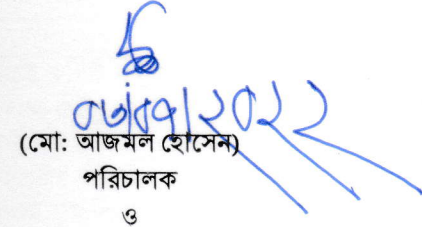 ০৬/০৭/২০২২
(মো: আজমল হোসেন)
পরিচালক
ও